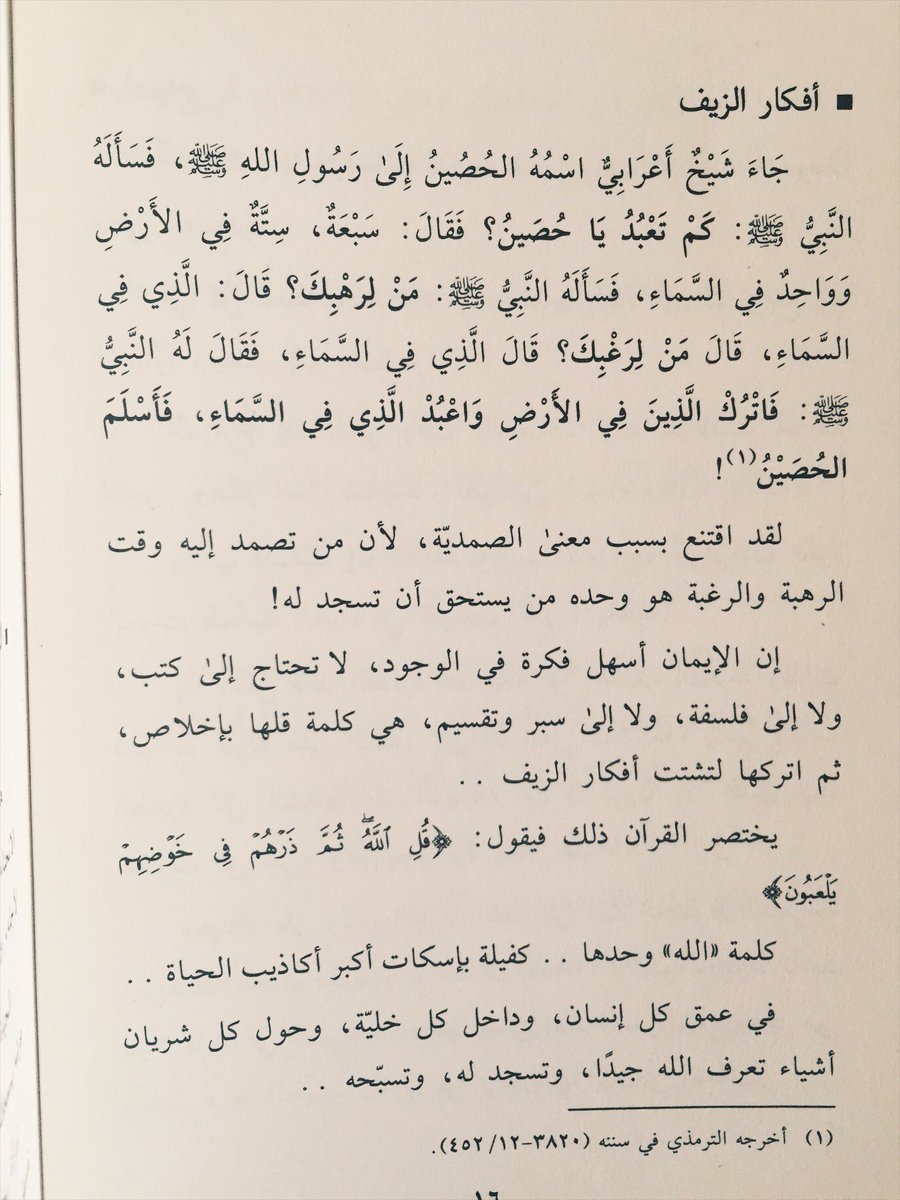 ▪ أفكار الزيف
جَاءَ شَيْخٌ أَعْرَابِيٌّ اسْمُهُ الحُصُينُ إِلَىٰ رَسُولِ اللهِ ﷺ، فَسَأَلَهُ
النَّبِيُّ ﷺ: كَمْ تَعْبُدُ يَا حُصَينُ؟ فَقَالَ: سَبْعَةٌ، سِتَّةٌ فِي الأَرْضِ
وَوَاحِدٌ فِي السَّمَاءِ، فَسَأَلَهُ النَّبِيُّ ﷺ: مَنْ لِرَهْبِكَ؟ قَالَ: الَّذِي فِي
السَّمَاءِ، قَالَ مَنْ لِرَغْبِكَ؟ قَالَ الَّذِي فِي السَّمَاءِ، فَقَالَ لَهُ النَّبِيُّ
ﷺ: فَاتْرُكْ الَّذِينَ فِي الأَرْضِ وَاعْبُدْ الَّذِي فِي السَّمَاءِ، فَأَسْلَمَ
الحُصَيْنُ(١)!
لقد اقتنع بسبب معنىٰ الصمديّة، لأن من تصمد إليه وقت
الرهبة والرغبة هو وحده من يستحق أن تسجد له!
إن الإيمان أسهل فكرة في الوجود، لا تحتاج إلىٰ كتب،
ولا إلىٰ فلسفة، ولا إلىٰ سبر وتقسيم، هي كلمة قلها بإخلاص،
ثم اتركها لتشتت أفكار الزيف . .
يختصر القرآن ذلك فيقول: ﴿قُلِ ٱللَّهُۖ ثُمَّ ذَرۡهُمۡ فِي خَوۡضِهِمۡ
يَلۡعَبُونَ﴾
كلمة «الله» وحدها . . كفيلة بإسكات أكبر أكاذيب الحياة . .
في عمق كل إنسان، وداخل كل خليّة، وحول كل شريان
أشياء تعرف الله جيدًا، وتسجد له، وتسبّحه . .
(١) أخرجه الترمذي في سننه (٣٨٢٠-١٢/٤٥٢).
١٦